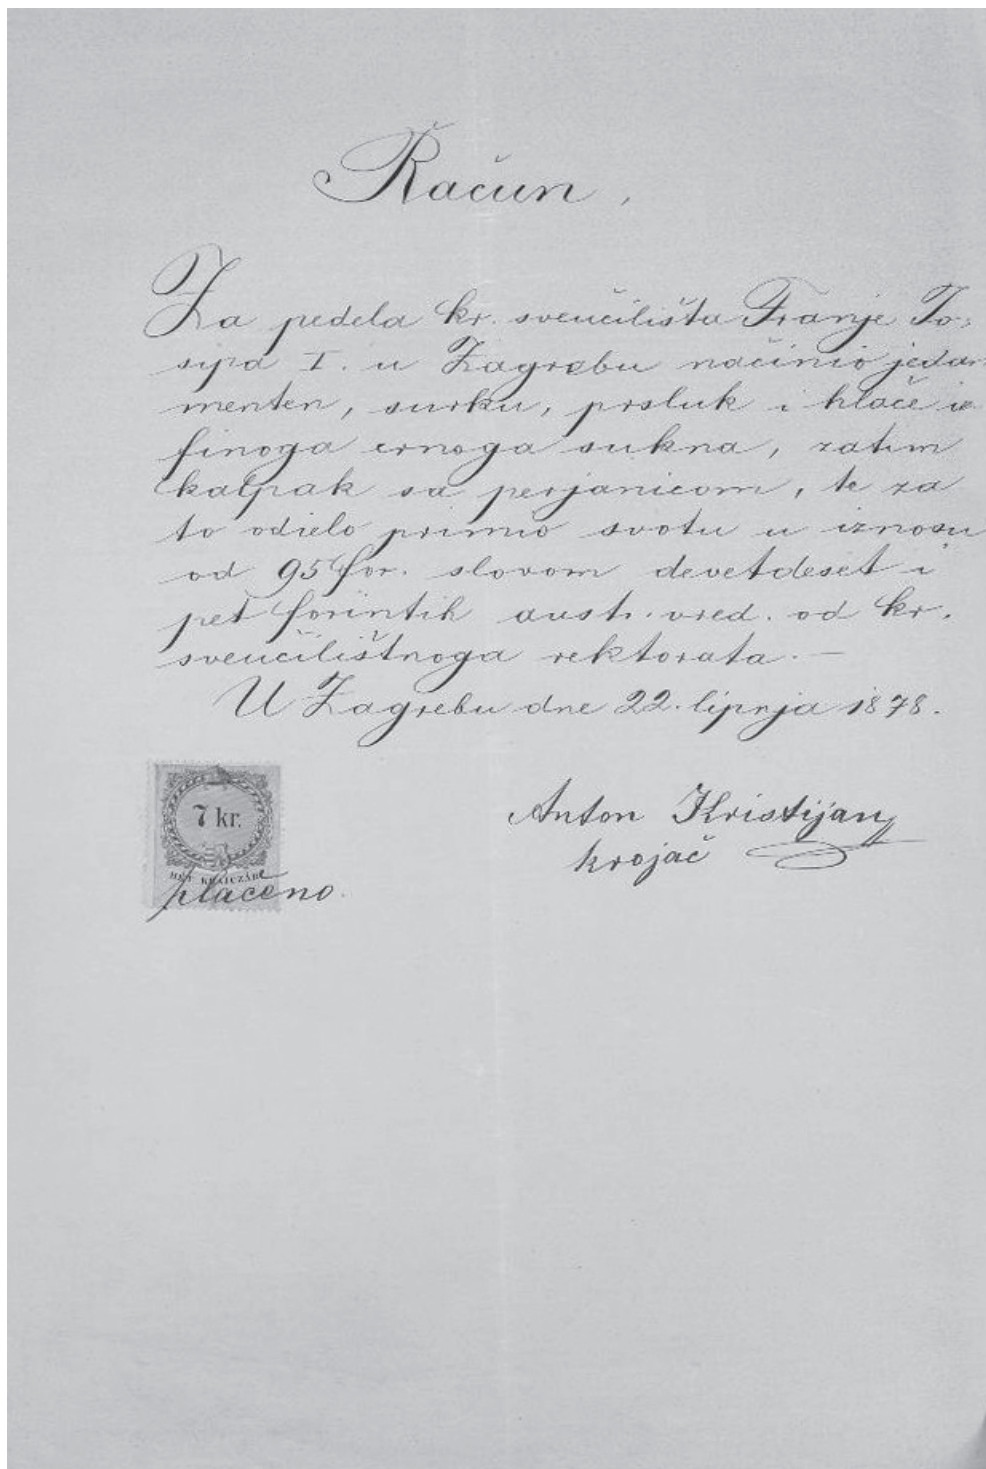 Račun.
Za pedela kr. sveučilišta Franje Jo-
sipa I. u Zagrebu načinio jedan
menten, surku, prsluk i hlače iz
finoga crnoga sukna, zatim
kalpak sa perjanicom, te za
to odielo primio svotu u iznosu
od 95 for. slovom devetdeset i
pet forintih austr. vred. od kr.
sveučilištnoga rektorata. —
U Zagrebu dne 22. lipnja 1878.
7 kr.
HÉT KRAJCZÁR
plaćeno.
Anton Kristijan
krojač